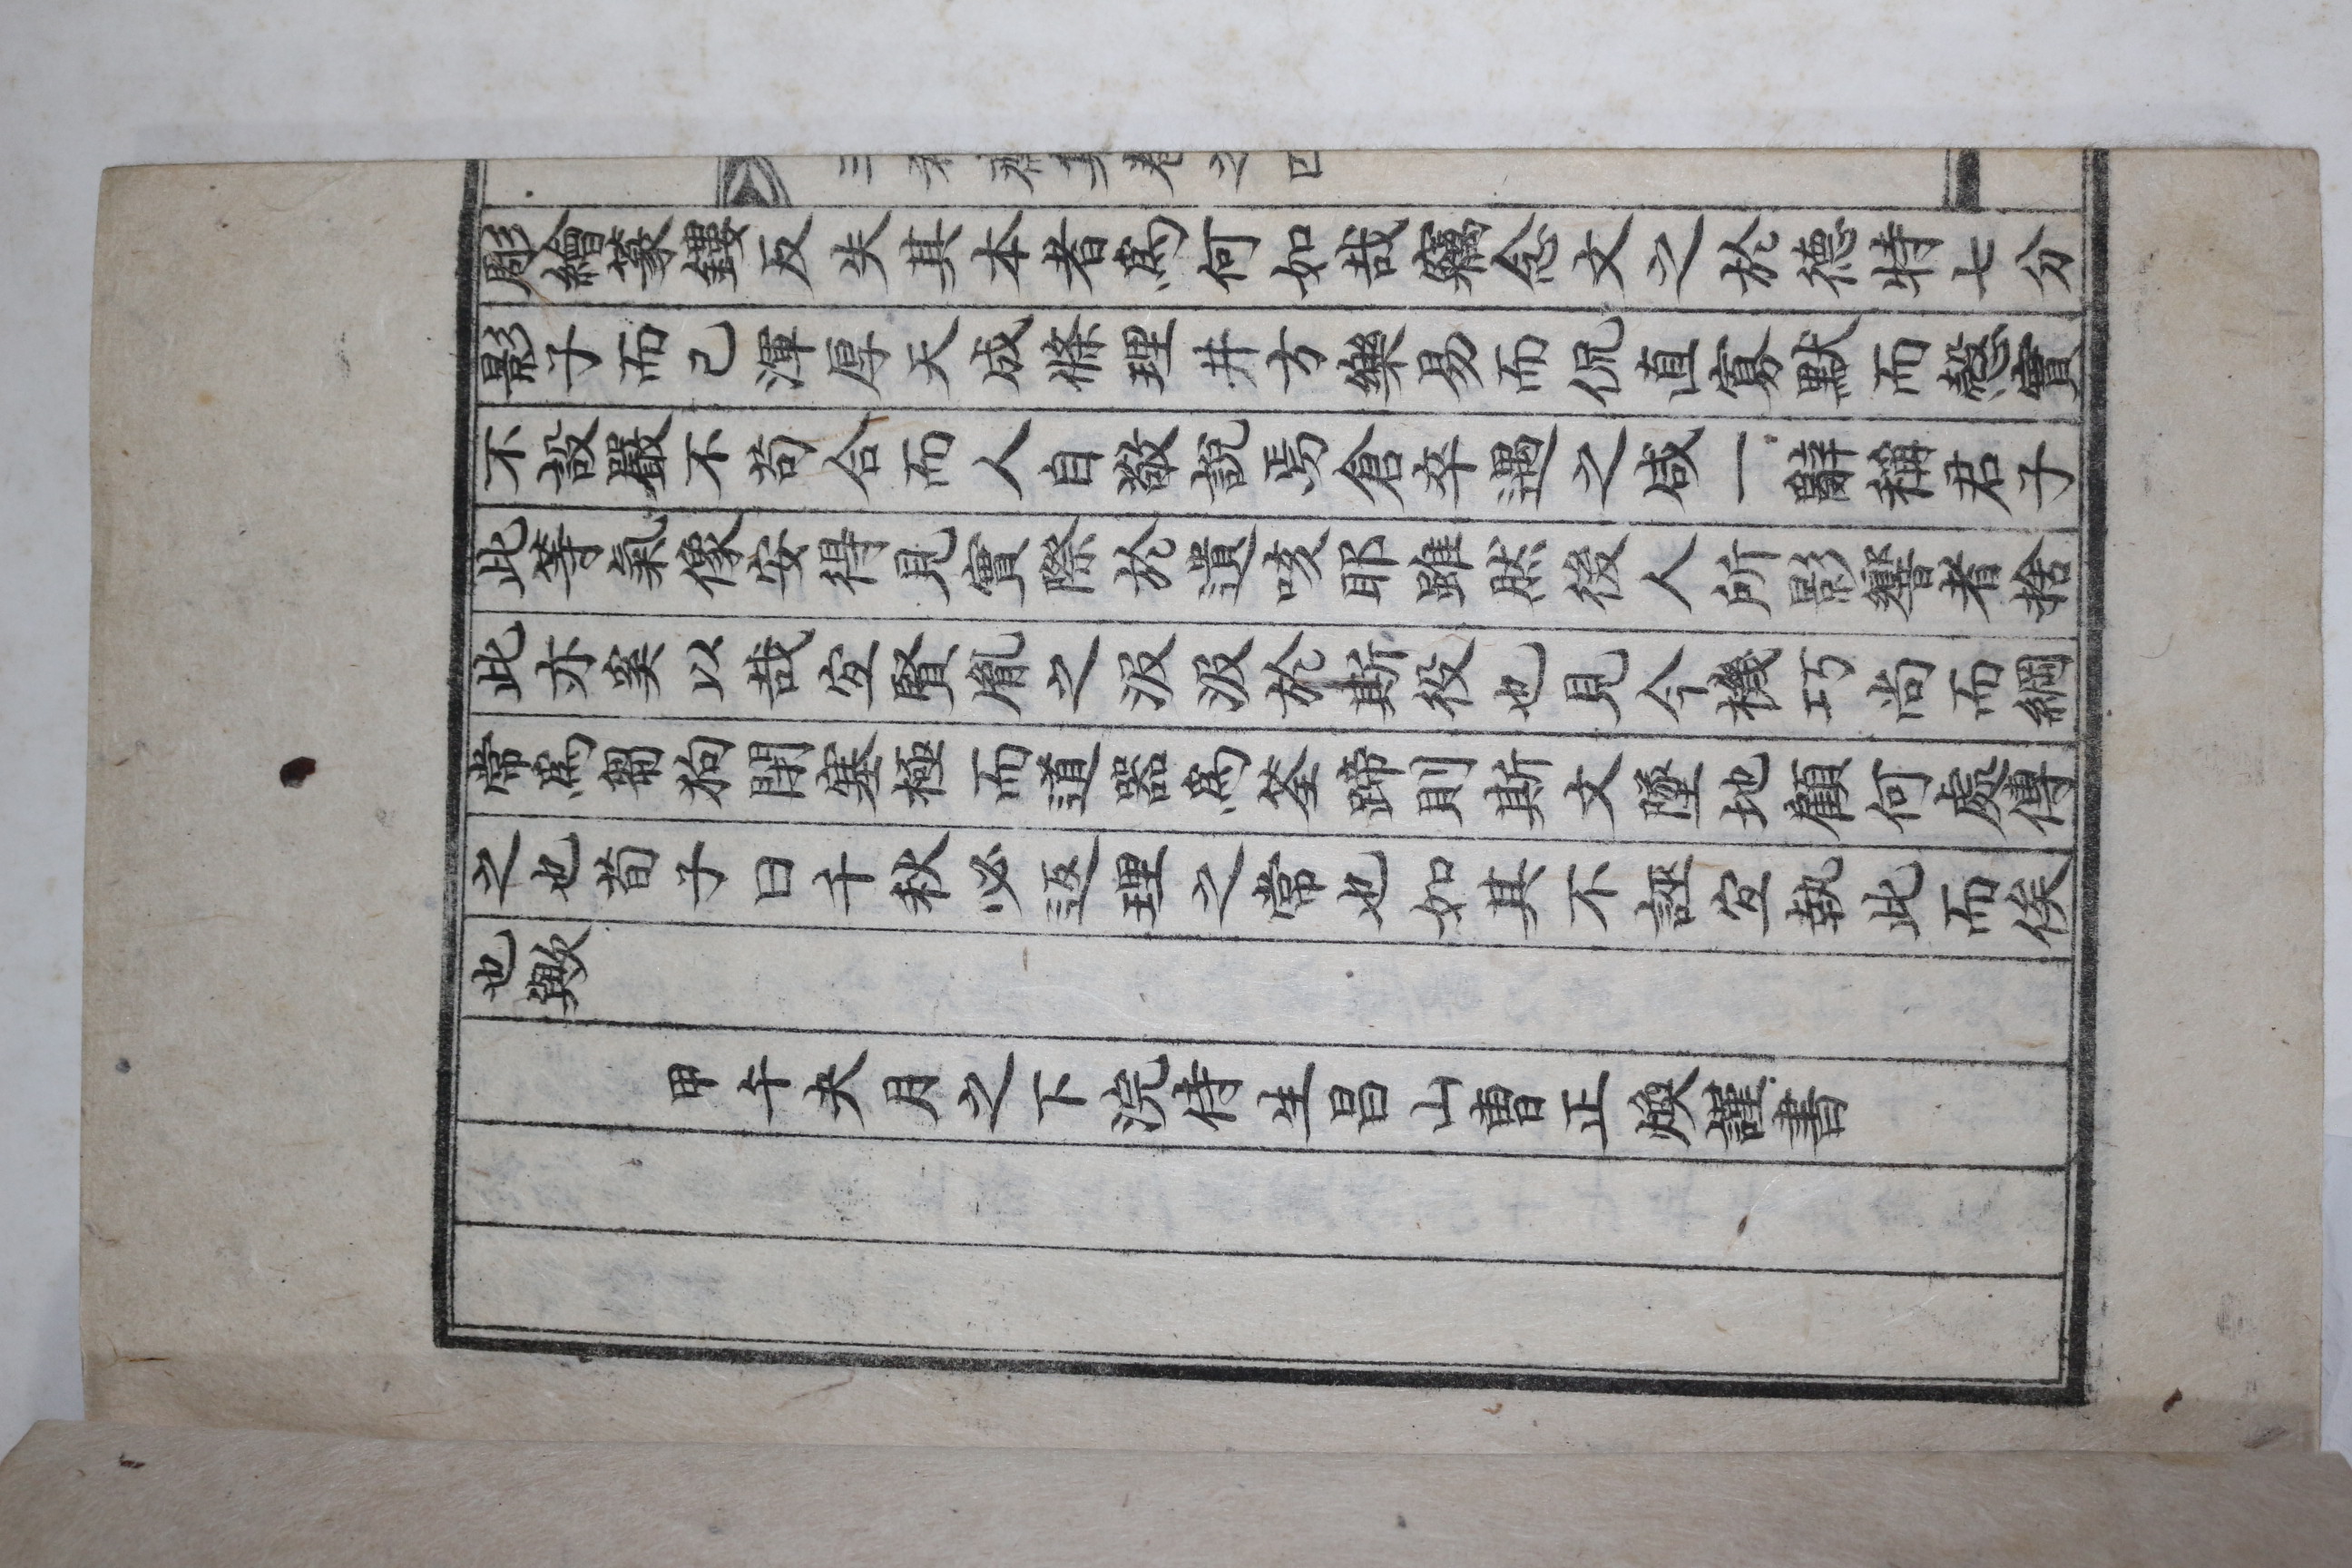 彫繪篆鏤反失其本者爲何如哉竊念文之於德特七分
影子而已渾厚天成條理井方樂易而侃直寡默而慤實
不設嚴不苟合而人自敬說焉倉卒遇之咸一辭稱君子
此等氣像安得見實際於遺咳耶雖然後人所影響者捨
此亦奚以哉宜賢胤之汲汲於斯役也見今機巧尚而綱
常爲芻狗閉塞極而道器爲筌蹄則斯文墜地顧何處傳
之也荀子曰千秋必返理之常也如其不誣宜執此而俟
也歟
甲午夬月之下浣侍生昌山曺正煥謹書